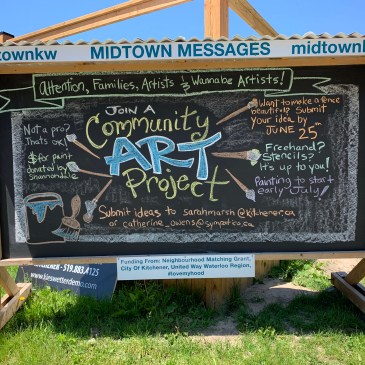 townkw MIDTOWN MESSAGES midtownk
Attention, Families, Artists & Wannabe Artists!
JOIN A
Community
ART
Project
Not a pro?
That's OK!
$ for paint
donated by
Want to make a fence
beautiful? Submit
your idea by
JUNE 25th
Freehand?
Stencils?
It's up to you!
Painting to start
early July!
Submit ideas to sarahmarsh@kitchener.ca
or catherine_owens@sympatico.ca
Funding From: Neighbourhood Matching Grant,
City Of Kitchener, United Way Waterloo Region,
#lovemyhood
519.883.4125